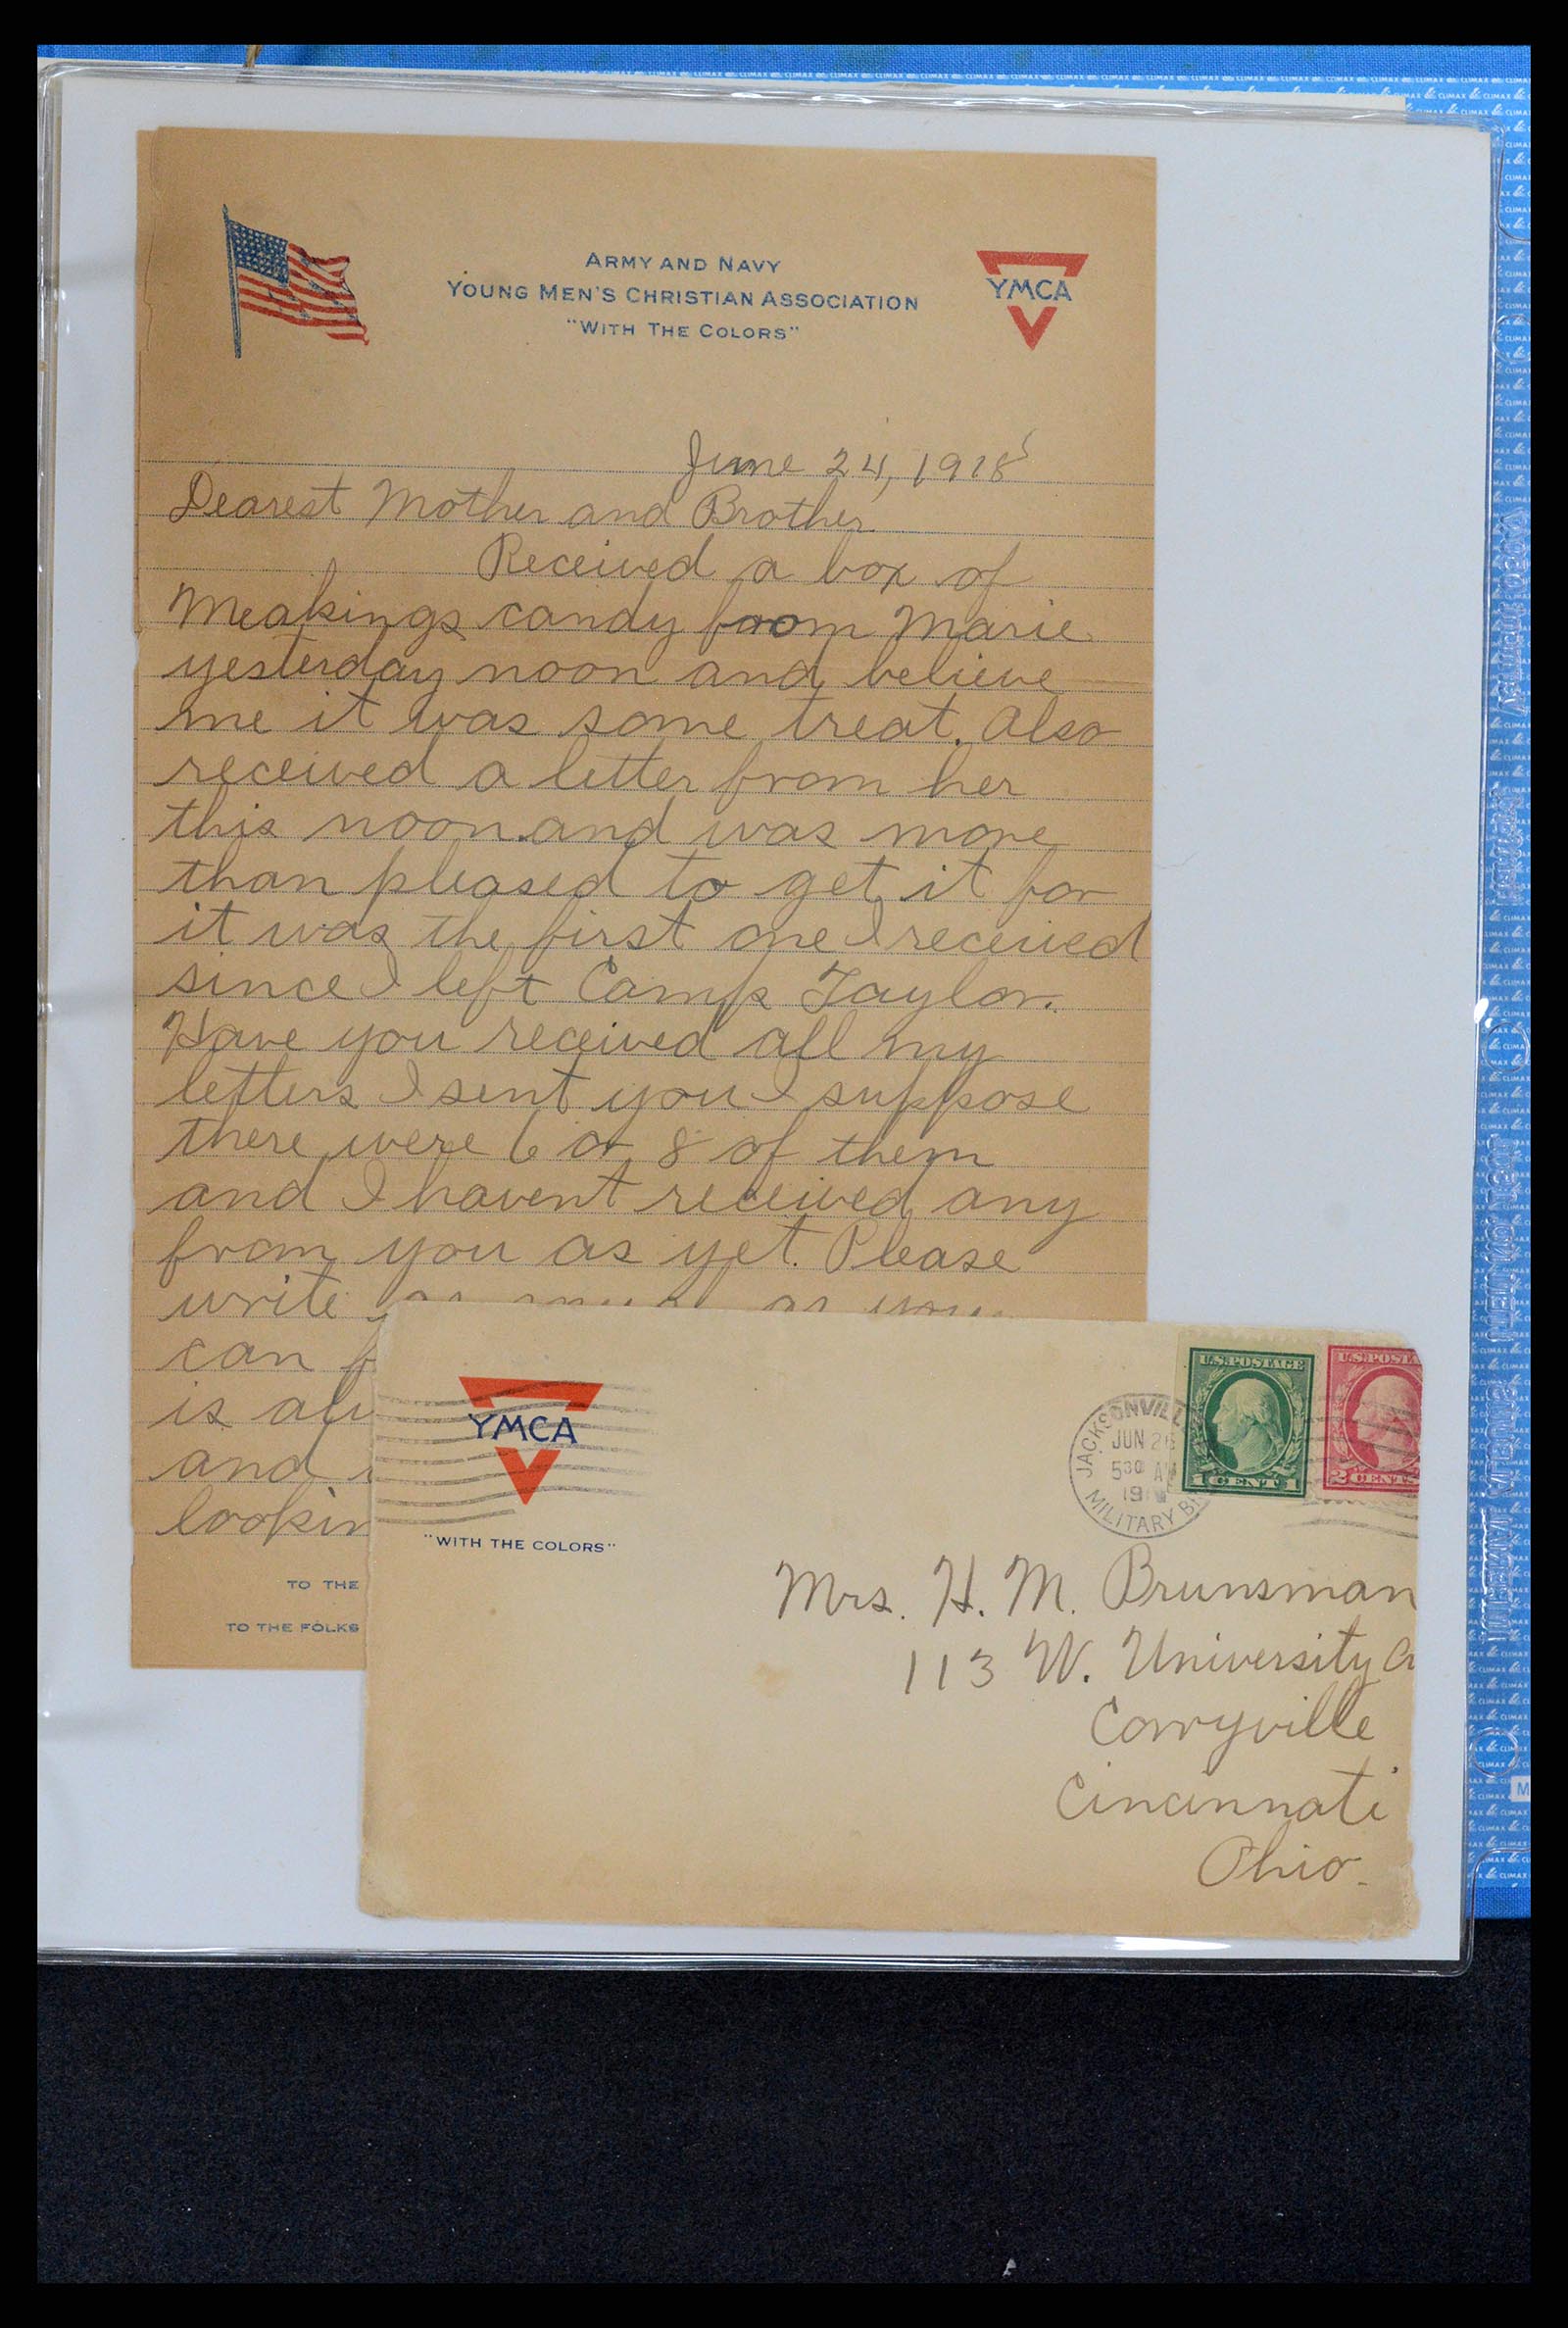 ARMY AND NAVY
YOUNG MEN'S CHRISTIAN ASSOCIATION
"WITH THE COLORS"
YMCA
June 24, 1918
Dearest Mother and Brother
Received a box of
Meakings candy from Marie
yesterday noon and believe
me it was some treat. Also
received a letter from her
this noon and was more
than pleased to get it for
it was the first one I received
since I left Camp Taylor.
Have you received all my
letters I sent you I suppose
there were 6 or 8 of them
and I havent received any
from you as yet. Please
write as as you
can
is
and
TO THE
TO THE FOLKS
YMCA
"WITH THE COLORS"
JACKSONVILL
JUN 26
5 30 AM
19
MILITARY BR
U.S. POSTAGE
1 CENT 1
U.S. POSTA
2 CENTS
Mrs. H. M. Brunsman
113 W. University A
Corryville
Cincinnati
Ohio.
CLIMAX